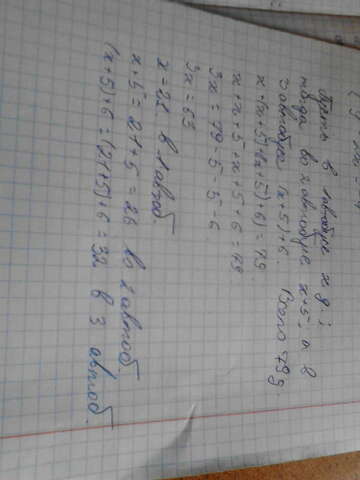 будет в 1 автобусе x д.,
тогда во 2 автобусе x+5, а в
3 автобусе (x+5)+6. Всего 79 д.
x+(x+5)+(x+5)+6)=79.
x+x+5+x+5+6=79
3x=79-5-5-6.
3x=63
x=21 в 1 автоб.
x+5=21+5=26 во 2 автоб.
(x+5)+6=(21+5)+6=32 в 3 автоб.